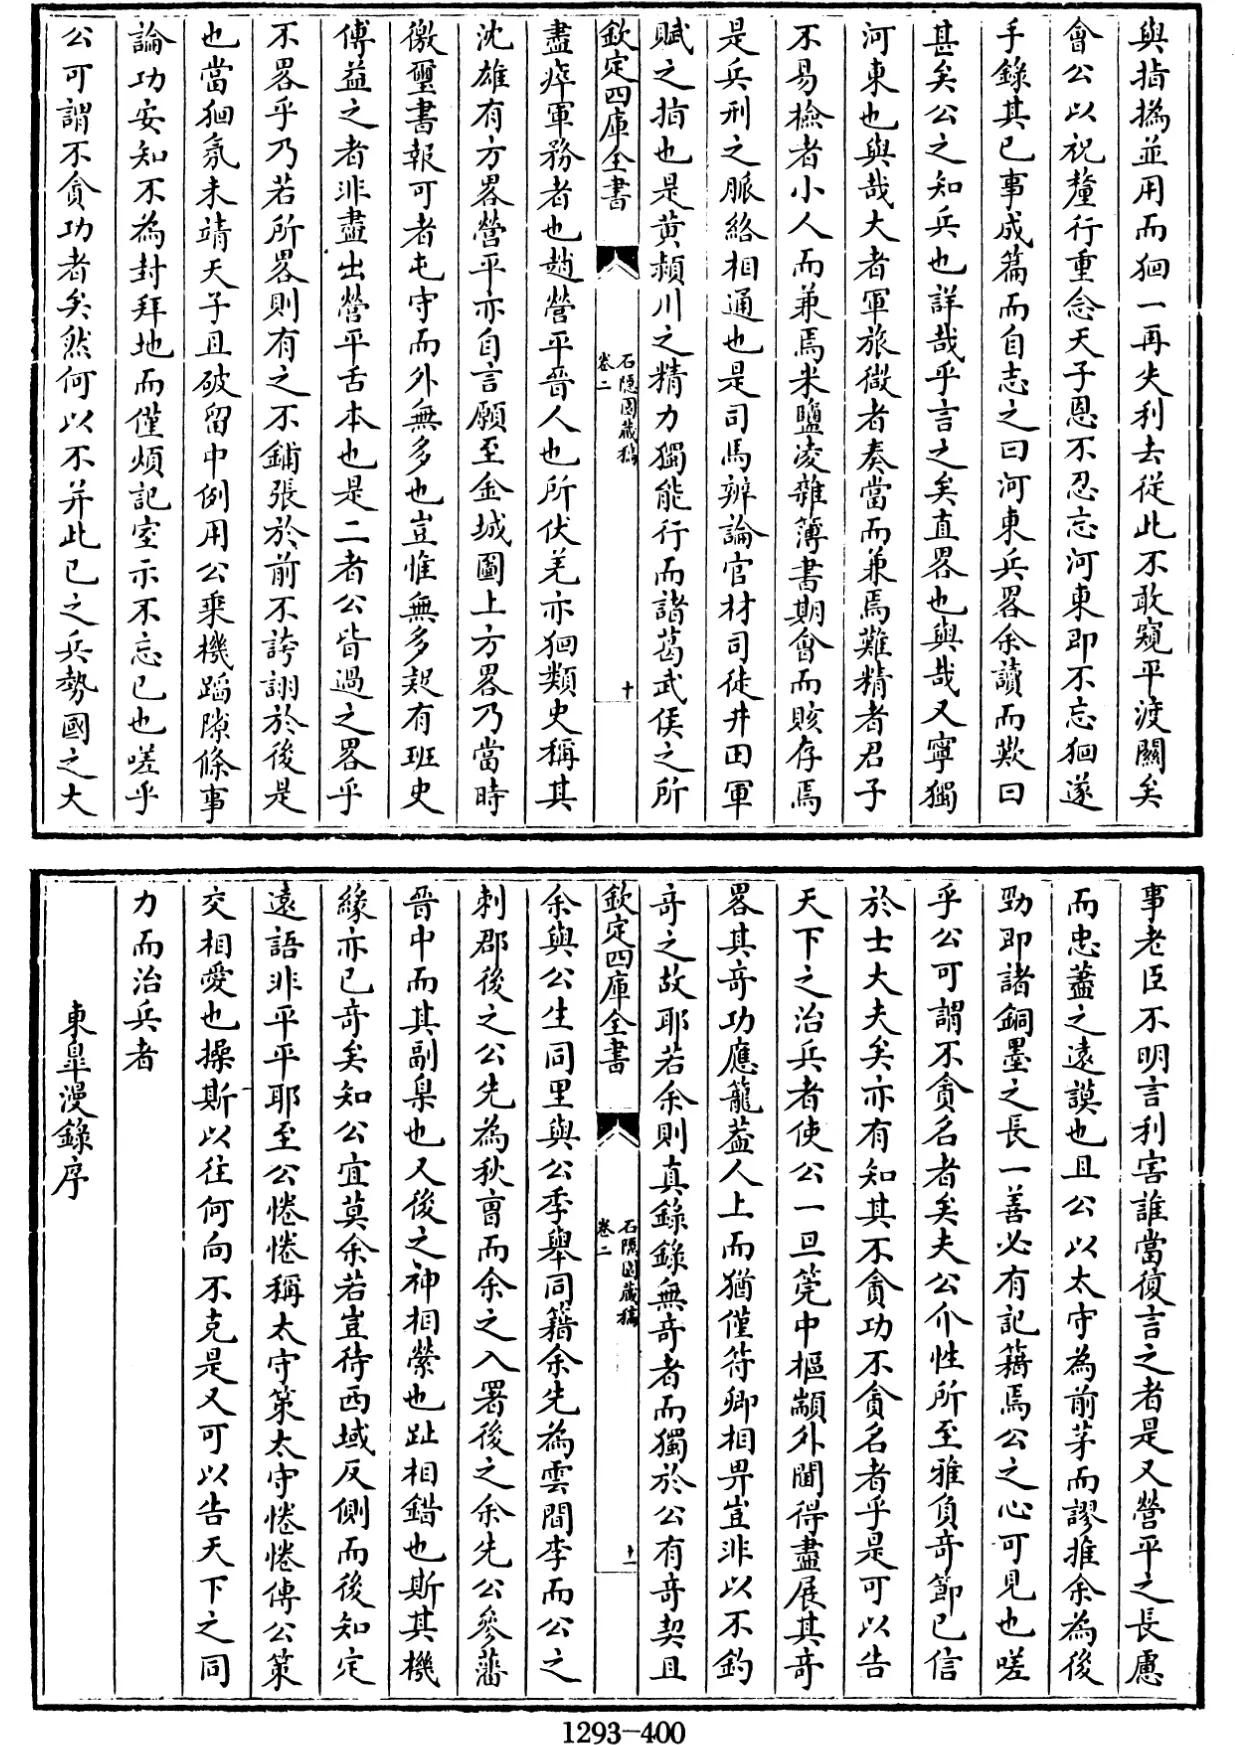 與指撝並用而狪一再失利去從此不敢窺平渡關矣
會公以祝釐行重念天子恩不忍忘河東即不忘狪遂
手錄其已事成篇而自志之曰河東兵畧余讀而歎曰
甚矣公之知兵也詳哉乎言之矣直畧也與哉又寧獨
河東也與哉大者軍旅微者奏當而兼焉難精者君子
不易撿者小人而兼焉米鹽凌雜簿書期會而賅存焉
是兵刑之脈絡相通也是司馬辨論官材司徒井田軍
賦之指也是黄頴川之精力獨能行而諸葛武侯之所
欽定四庫全書
石隱園藏稿
卷二
十
盡瘁軍務者也趙營平晉人也所伏羌亦狪類史稱其
沈雄有方畧營平亦自言願至金城圖上方畧乃當時
徼璽書報可者屯守而外無多也豈惟無多起有班史
傅益之者非盡出營平舌本也是二者公皆過之畧乎
不畧乎乃若所畧則有之不鋪張於前不誇詡於後是
也當狪氛未靖天子且破留中例用公乘機蹈隙條事
論功安知不為封拜地而僅煩記室示不忘已也嗟乎
公可謂不貪功者矣然何以不并此已之兵勢國之大
事老臣不明言利害誰當復言之者是又營平之長慮
而忠藎之遠謨也且公以太守為前茅而謬推余為後
勁即諸銅墨之長一善必有記籍焉公之心可見也嗟
乎公可謂不貪名者矣夫公介性所至雅負奇節已信
於士大夫矣亦有知其不貪功不貪名者乎是可以告
天下之治兵者使公一旦筦中樞顓外閫得盡展其奇
畧其奇功應籠葢人上而猶僅符卿相畀豈非以不釣
奇之故耶若余則真錄錄無奇者而獨於公有奇契且
欽定四庫全書
石隱園藏稿
卷二
十一
余與公生同里與公季舉同籍余先為雲間李而公之
刺郡後之公先為秋曹而余之入署後之余先公參藩
晉中而其副臬也又後之神相縈也趾相錯也斯其機
緣亦已奇矣知公宜莫余若豈待西域反側而後知定
遠語非平平耶至公惓惓稱太守策太守惓惓傅公策
交相愛也操斯以往何向不克是又可以告天下之同
力而治兵者
東臯漫錄序
1293-400